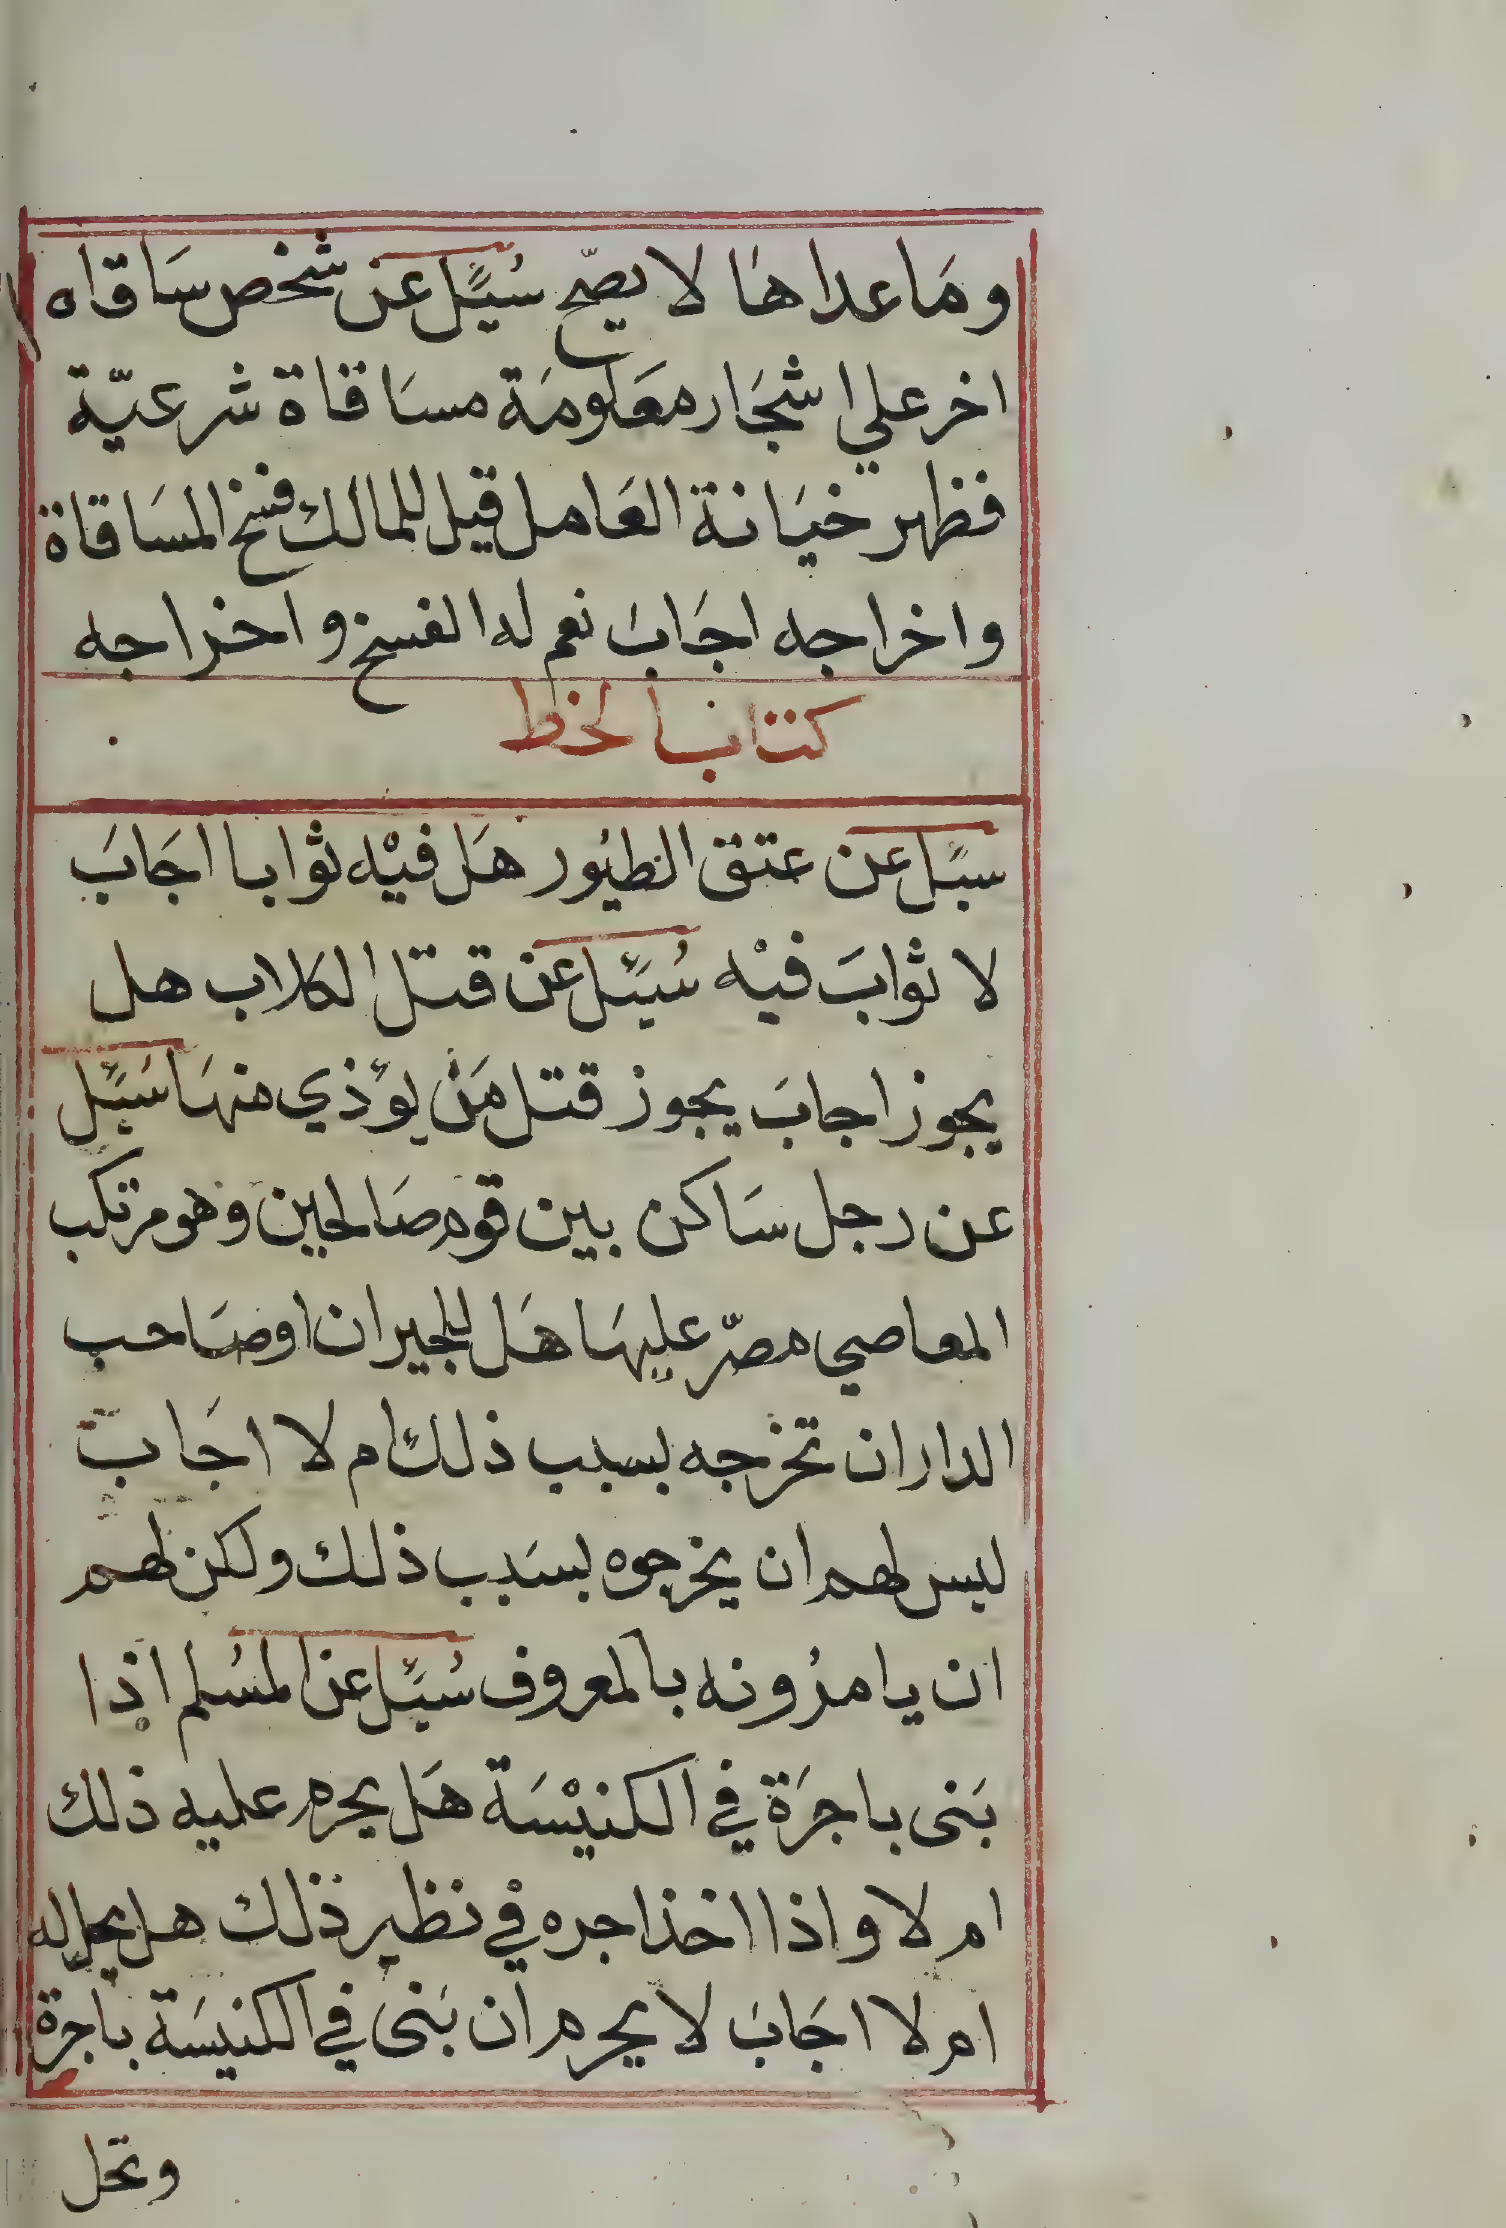 وما عداها لا يصح سئل عن شخص ساقاه
اخر علي اشجار معلومة مساقاة شرعيّة
فظهر خيانة العامل قيل للمالك فسخ المساقاة
واخراجه اجاب نعم له الفسخ واخراجه
كتاب الخط
سئل عن عتق الطيور هل فيه ثوابا اجابَ
لا ثوابَ فيْه سُئل عن قتل الكلاب هل
يجوز اجابَ يجوز قتل مَنْ يؤذي منهَا سُئل
عن رجل سَاكن بين قوم صَالحين وهو مرتكب
المعاصي مصرّ عليهَا هَل للجيران او صَاحب
الدار ان تخرجه بسبب ذلك ام لا اجَابَ
ليس لهم ان يخرجوه بسَبب ذلك ولكن لهم
ان يامرُونه بالمعروف سُئل عن المسُلم اذا
بَنى باجرَة في الكنيْسَة هَل يحرم عليه ذلك
ام لا واذا اخذ اجره في نظير ذلك هل يحل له
ام لا اجَابَ لا يحرم ان بَنى في الكنيسَة باجرَة
وتحل